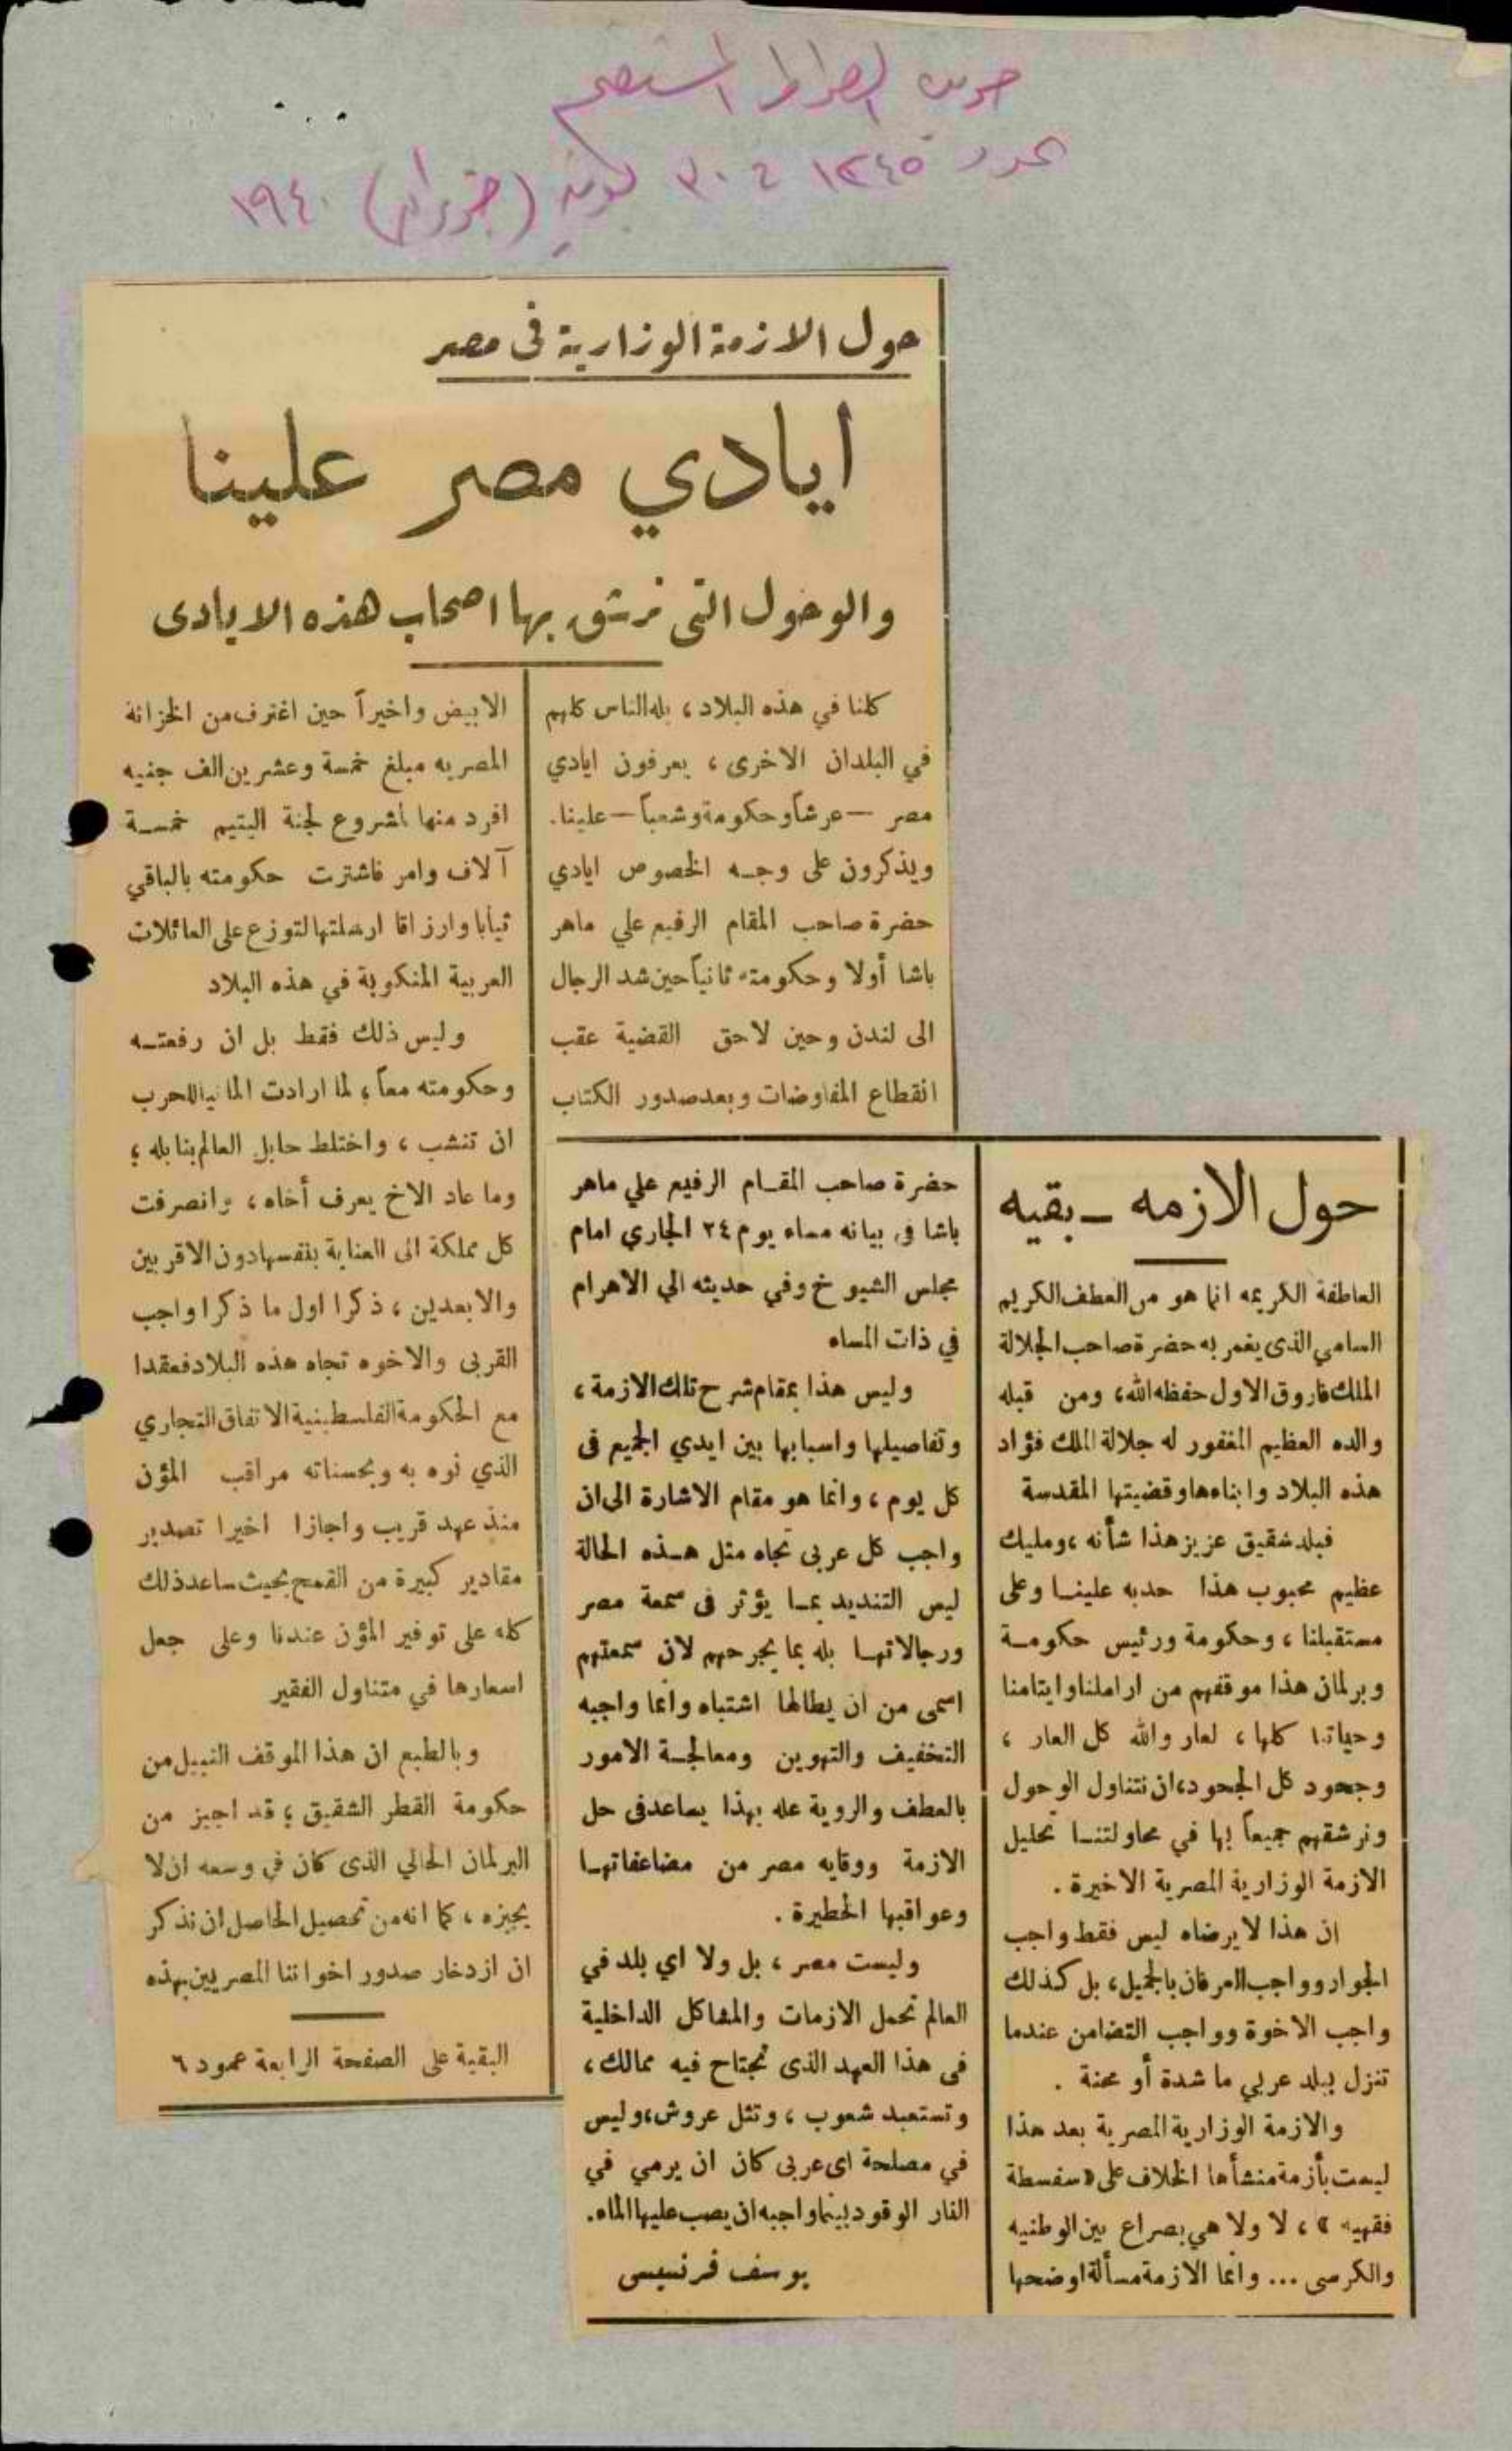 الصراط المستقيم
عدد ١٢٤٥ ٣٠ يونيه (حزيران) ١٩٤٠
حول الازمة الوزارية فى مصر
ايادي مصر علينا
والوحول التى نرشق بها اصحاب هذه الايادى
كلنا في هذه البلاد، بله الناس كلهم
في البلدان الاخرى، يعرفون ايادي
مصر — عرشاً وحكومة وشعباً — علينا.
ويذكرون على وجه الخصوص ايادي
حضرة صاحب المقام الرفيع علي ماهر
باشا أولا وحكومته ثانياً حين شد الرحال
الى لندن وحين لاحق القضية عقب
انقطاع المفاوضات وبعد صدور الكتاب
الابيض واخيراً حين اغترف من الخزانة
المصريه مبلغ خمسة وعشرين الف جنيه
افرد منها لمشروع لجنة اليتيم خمسة
آلاف وامر فاشترت حكومته بالباقي
ثيابا وارزاقا ارسلتها لتوزع على العائلات
العربية المنكوبة في هذه البلاد
وليس ذلك فقط بل ان رفعته
وحكومته معاً، لما ارادت المانيا للحرب
ان تنشب، واختلط حابل العالم بنابله،
وما عاد الاخ يعرف أخاه، وانصرفت
كل مملكة الى العناية بنفسها دون الاقربين
والابعدين، ذكرا اول ما ذكرا واجب
القربى والاخوه تجاه هذه البلاد فعقدا
مع الحكومة الفلسطينية الاتفاق التجاري
الذي نوه به وبحسناته مراقب المؤن
منذ عهد قريب واجازا اخيرا تصدير
مقادير كبيرة من القمح بحيث ساعد ذلك
كله على توفير المؤن عندنا وعلى جعل
اسعارها في متناول الفقير
وبالطبع ان هذا الموقف النبيل من
حكومة القطر الشقيق، قد اجيز من
البرلمان الحالي الذى كان في وسعه ان لا
يجيزه، كما انه من تحصيل الحاصل ان نذكر
ان ازدخار صدور اخواننا المصريين بهذه
البقية على الصفحة الرابعة عمود ٦
حول الازمه — بقيه
العاطفة الكريمه انما هو من العطف الكريم
السامي الذى يغمر به حضرة صاحب الجلالة
الملك فاروق الاول حفظه الله، ومن قبله
والده العظيم المغفور له جلالة الملك فؤاد
هذه البلاد وابناءها وقضيتها المقدسة
فبلد شقيق عزيز هذا شأنه، ومليك
عظيم محبوب هذا حدبه علينا وعلى
مستقبلنا، وحكومة ورئيس حكومة
وبرلمان هذا موقفهم من اراملنا وايتامنا
وحياتنا كلها، لعار والله كل العار،
وجحود كل الجحود، ان نتناول الوحول
ونرشقهم جميعاً بها في محاولتنا تحليل
الازمة الوزارية المصرية الاخيرة.
ان هذا لا يرضاه ليس فقط واجب
الجوار وواجب العرفان بالجميل، بل كذلك
واجب الاخوة وواجب التضامن عندما
تنزل ببلد عربي ما شدة أو محنة.
والازمة الوزارية المصرية بعد هذا
ليست بأزمة منشأها الخلاف على «سفسطة
فقهيه»، لا ولا هي بصراع بين الوطنيه
والكرسى ... وانما الازمة مسألة اوضحها
حضرة صاحب المقام الرفيع علي ماهر
باشا في بيانه مساء يوم ٢٤ الجاري امام
مجلس الشيوخ وفي حديثه الى الاهرام
في ذات المساء
وليس هذا بمقام شرح تلك الازمة،
وتفاصيلها واسبابها بين ايدي الجميع فى
كل يوم، وانما هو مقام الاشارة الى ان
واجب كل عربى تجاه مثل هذه الحالة
ليس التنديد بما يؤثر فى سمعة مصر
ورجالاتها بله بما يجرحهم لان سمعتهم
اسمى من ان يطالها اشتباه وانما واجبه
التخفيف والتهوين ومعالجة الامور
بالعطف والروية عله بهذا يساعد فى حل
الازمة ووقايه مصر من مضاعفاتها
وعواقبها الخطيرة.
وليست مصر، بل ولا اي بلد في
العالم تحمل الازمات والمشاكل الداخلية
فى هذا العهد الذى تجتاح فيه ممالك،
وتستعبد شعوب، وتثل عروش، وليس
في مصلحة اى عربى كان ان يرمي في
النار الوقود بينما واجبه ان يصب عليها الماء.
يوسف فرنسيس